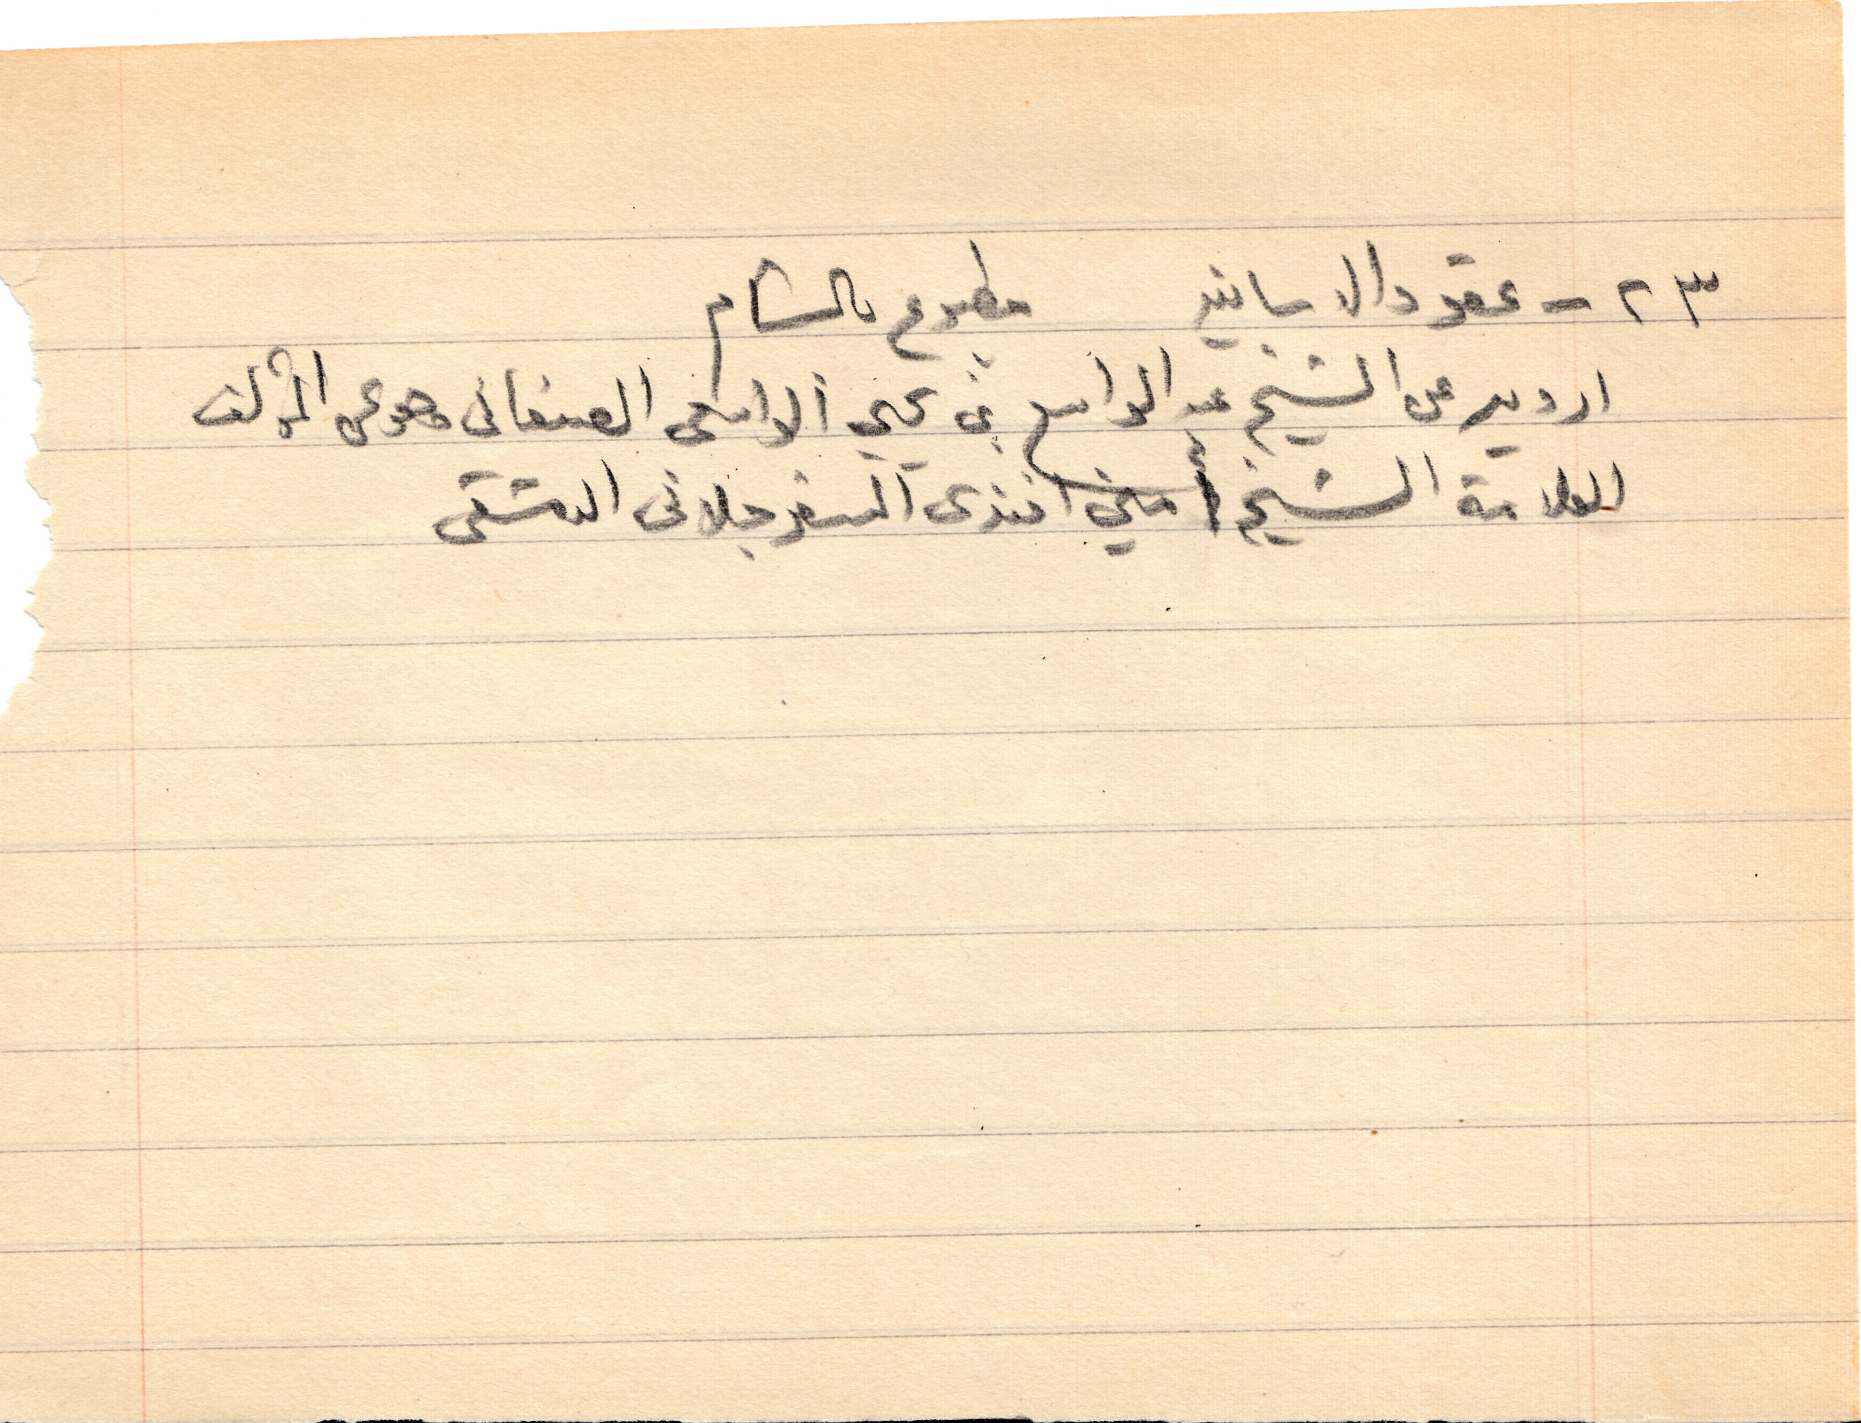 ٢٣ - عقود الاسانيد مطبوع بالشام
ارويه عن الشيخ عبد الواسع بن يحيى الواسعى الصنعانى وهو عن المؤلف
العلامة الشيخ أمين افندى السفرجلانى الدمشقى